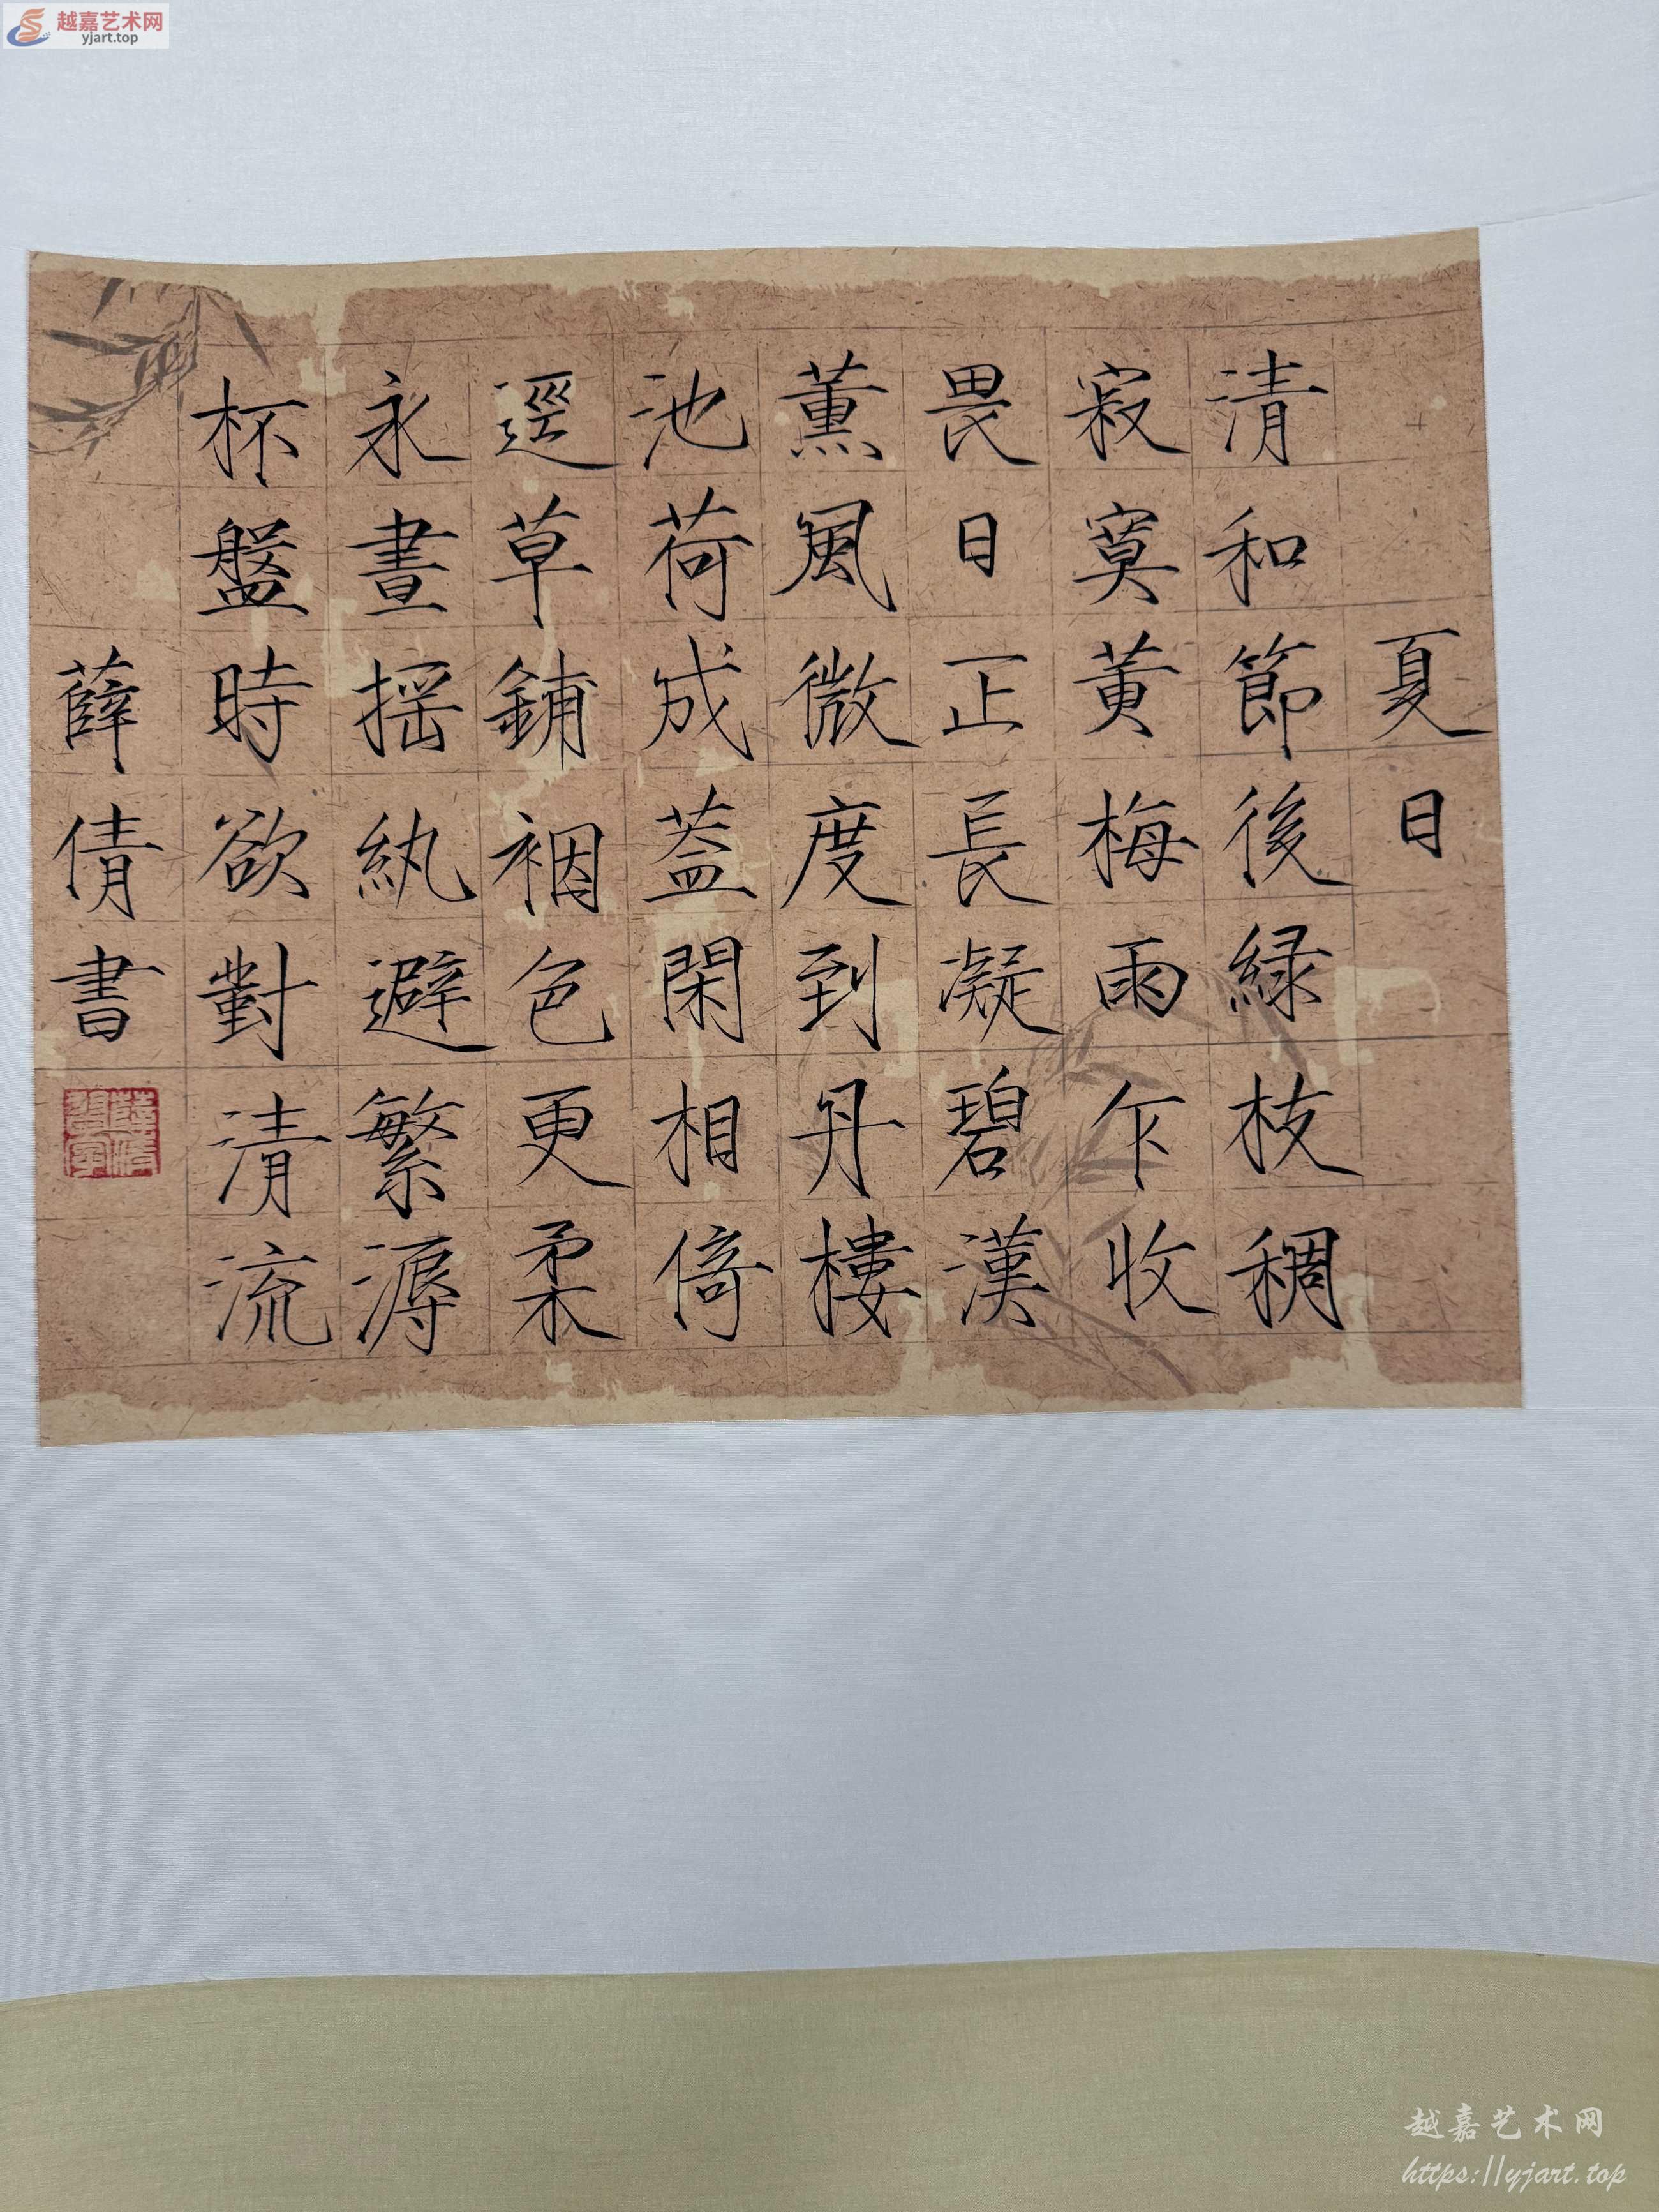 越嘉艺术网
yjart.top
夏日
清和節後緑枝稠
寂寞黄梅雨乍收
畏日正長凝碧漢
薰風微度到丹樓
池荷成蓋閑相倚
逕草鋪裀色更柔
永晝摇紈避繁溽
杯盤時欲對清流
薛倩書
越嘉艺术网
https://yjart.top